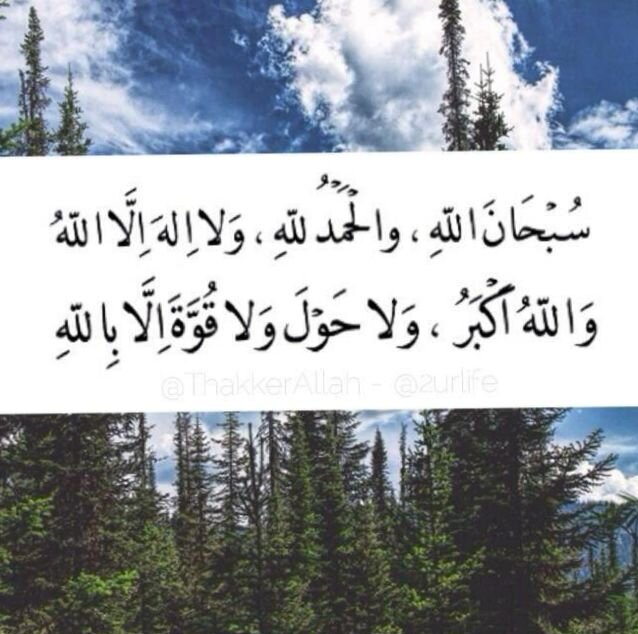 سُبْحَانَ اللّهِ ، والْحَمْدُ للّهِ ، وَلا اِلهَ اِلَّا اللّهُ
وَاللّهُ اَكْبَرُ ، وَلا حَوْلَ وَلا قُوَّةَ اِلَّا بِاللّهِ
@ThakkerAllah - @2urlife